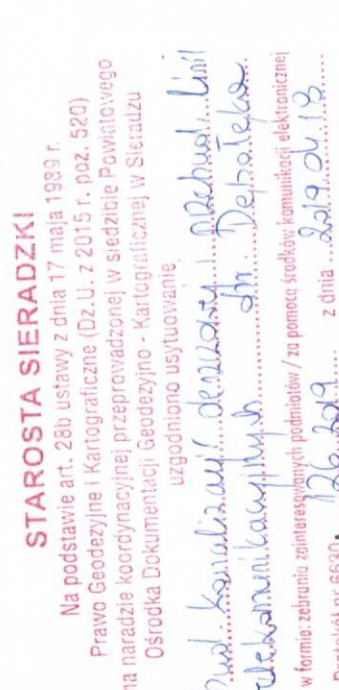 STAROSTA SIERADZKI
Na podstawie art. 28b ustawy z dnia 17 maja 1989 r.
Prawo Geodezyjne i Kartograficzne (Dz.U. z 2015 r. poz. 520)
na naradzie koordynacyjnej przeprowadzonej w siedzibie Powiatowego
Ośrodka Dokumentacji Geodezyjno - Kartograficznej w Sieradzu
uzgodniono usytuowanie
Bud. kanalizacji deszczowej, przebud. linii
telekomunikacyjnych dr.
w formie: zebrania zainteresowanych podmiotów / za pomocą środków komunikacji elektronicznej
Protokół nr 6630. 126.2019 z dnia 2019.04.18